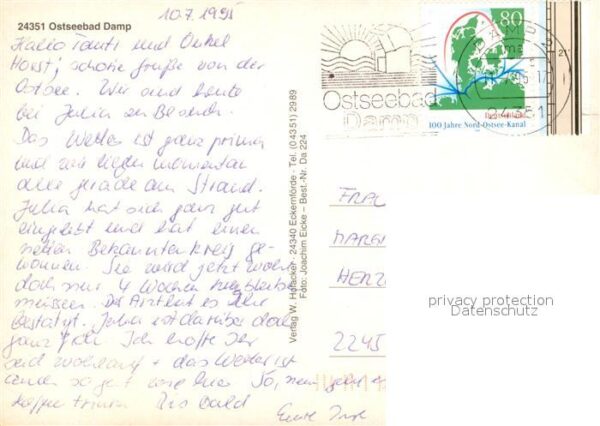 24351 Ostseebad Damp
10.7.1995
Hallo Tanti und Onkel
Horst, schöne Grüße von der
Ostsee. Wir sind heute
bei Julia zu Besuch.
Das Wetter ist ganz prima
und wir liegen momentan
alle gerade am Strand.
Julia hat sich ganz gut
eingelebt und hat einen
netten Bekanntenkreis ge-
wonnen. Sie wird jetzt wohl
doch nur 4 Wochen
müssen. Die Ärztin hat es ihr
bestätigt. Julia ist darüber doch
ganz froh. Ich hoffe Ihr
seid wohlauf + das Wetter ist
auch so gut wie hier. So, nun
Kaffee trinken Bis bald
Eure
Verlag W. Hofäcker · 24340 Eckernförde · Tel. (04351) 2989
Foto: Joachim Eicke – Best.-Nr. Da 224
Ostseebad
Damp
80
Deutschland
100 Jahre Nord-Ostsee-Kanal
DAMP
24351
FRAU
HERZ
2245
privacy protection
Datenschutz